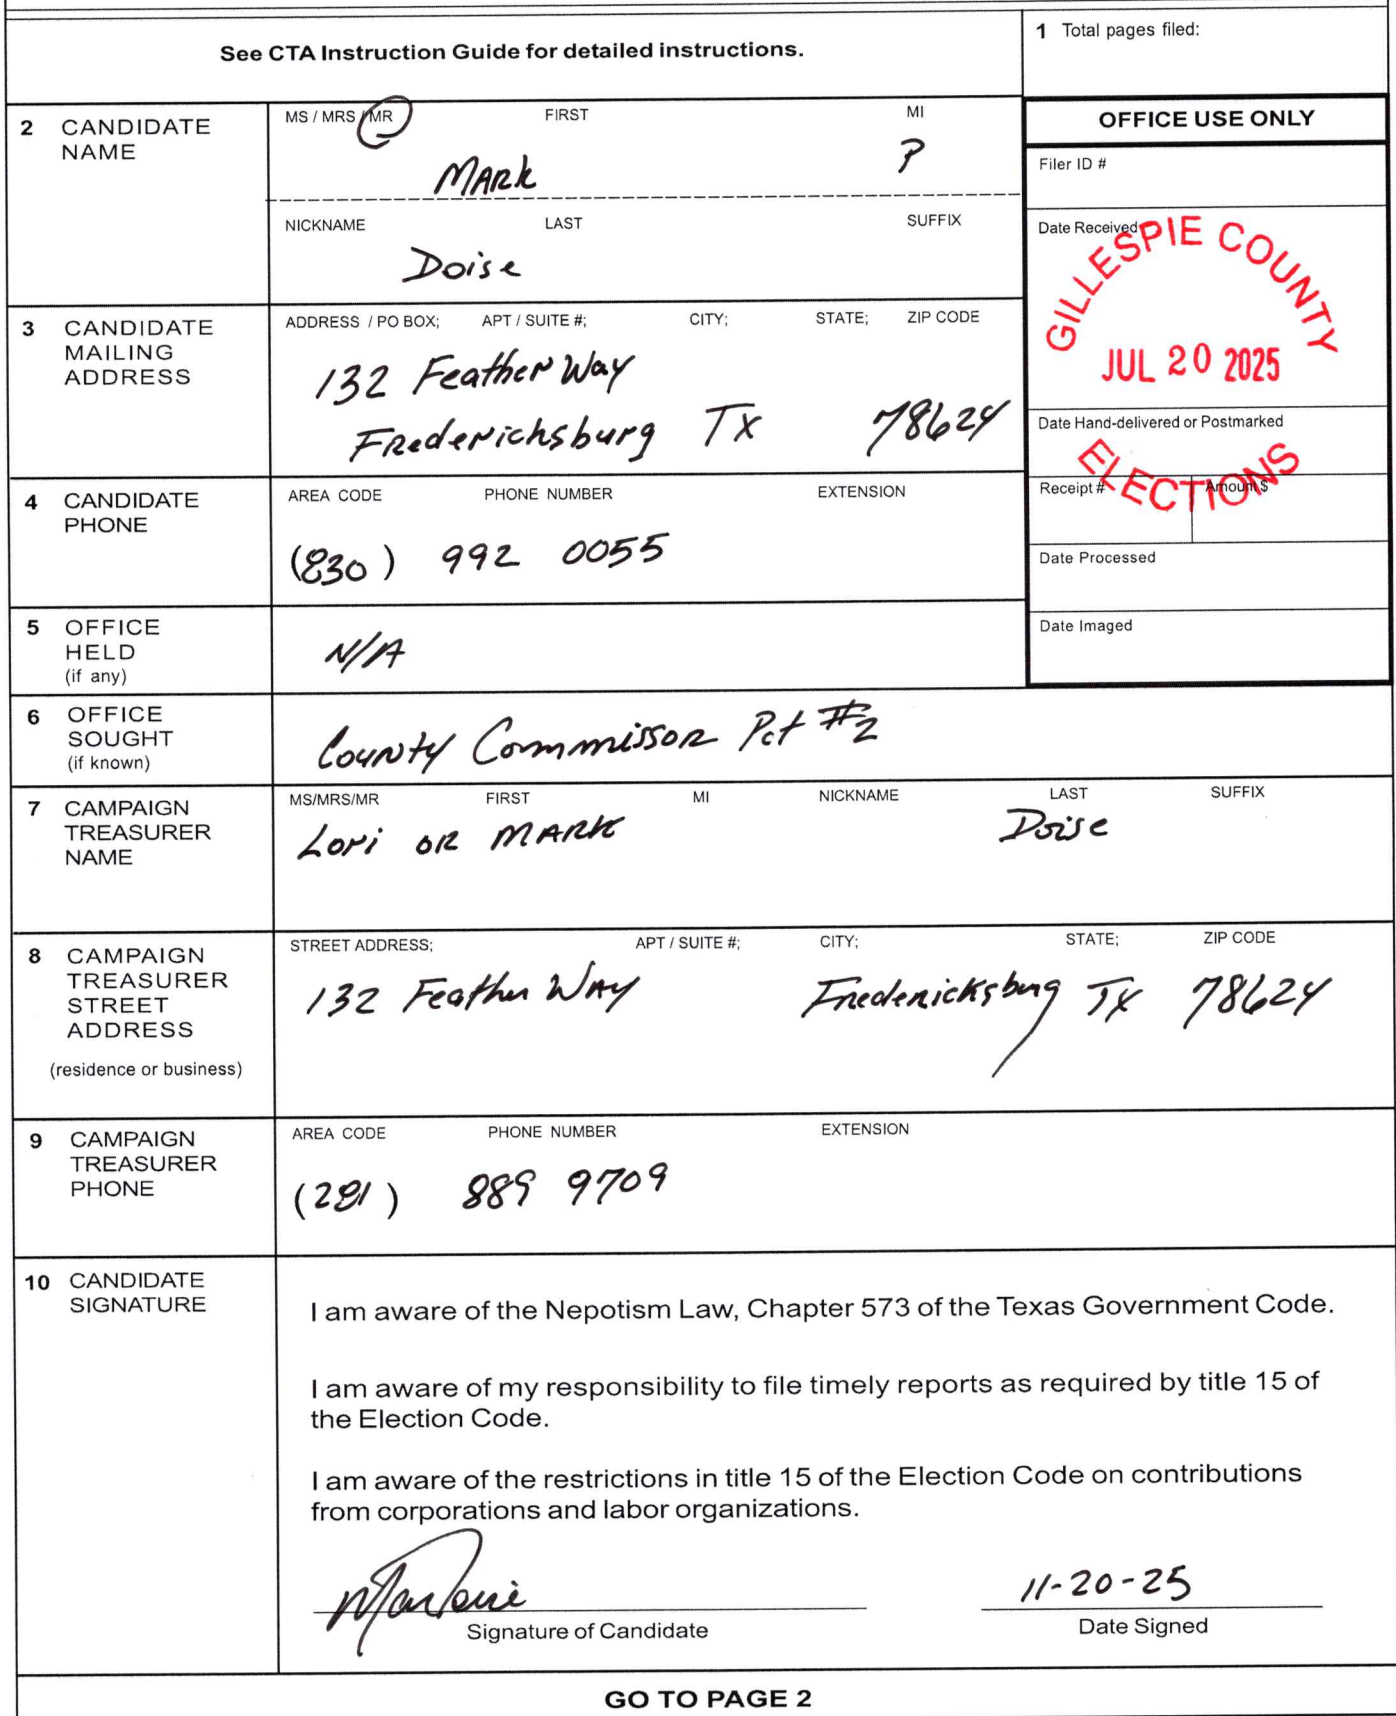 See CTA Instruction Guide for detailed instructions.
1 Total pages filed:
2 CANDIDATE NAME
MS / MRS / MR FIRST MI
MARK P
NICKNAME LAST SUFFIX
Doise
OFFICE USE ONLY
Filer ID #
Date Received
GILLESPIE COUNTY
JUL 20 2025
ELECTIONS
Date Hand-delivered or Postmarked
Receipt # Amount $
Date Processed
Date Imaged
3 CANDIDATE MAILING ADDRESS
ADDRESS / PO BOX; APT / SUITE #; CITY; STATE; ZIP CODE
132 Feather Way
Fredericksburg Tx 78624
4 CANDIDATE PHONE
AREA CODE PHONE NUMBER EXTENSION
(830) 992 0055
5 OFFICE HELD (if any)
N/A
6 OFFICE SOUGHT (if known)
County Commissor Pct #2
7 CAMPAIGN TREASURER NAME
MS/MRS/MR FIRST MI NICKNAME LAST SUFFIX
Lori OR MARK Doise
8 CAMPAIGN TREASURER STREET ADDRESS
(residence or business)
STREET ADDRESS; APT / SUITE #; CITY; STATE; ZIP CODE
132 Feather WAy Fredericksburg Tx 78624
9 CAMPAIGN TREASURER PHONE
AREA CODE PHONE NUMBER EXTENSION
(281) 889 9709
10 CANDIDATE SIGNATURE
I am aware of the Nepotism Law, Chapter 573 of the Texas Government Code.
I am aware of my responsibility to file timely reports as required by title 15 of
the Election Code.
I am aware of the restrictions in title 15 of the Election Code on contributions
from corporations and labor organizations.
11-20-25
Signature of Candidate Date Signed
GO TO PAGE 2